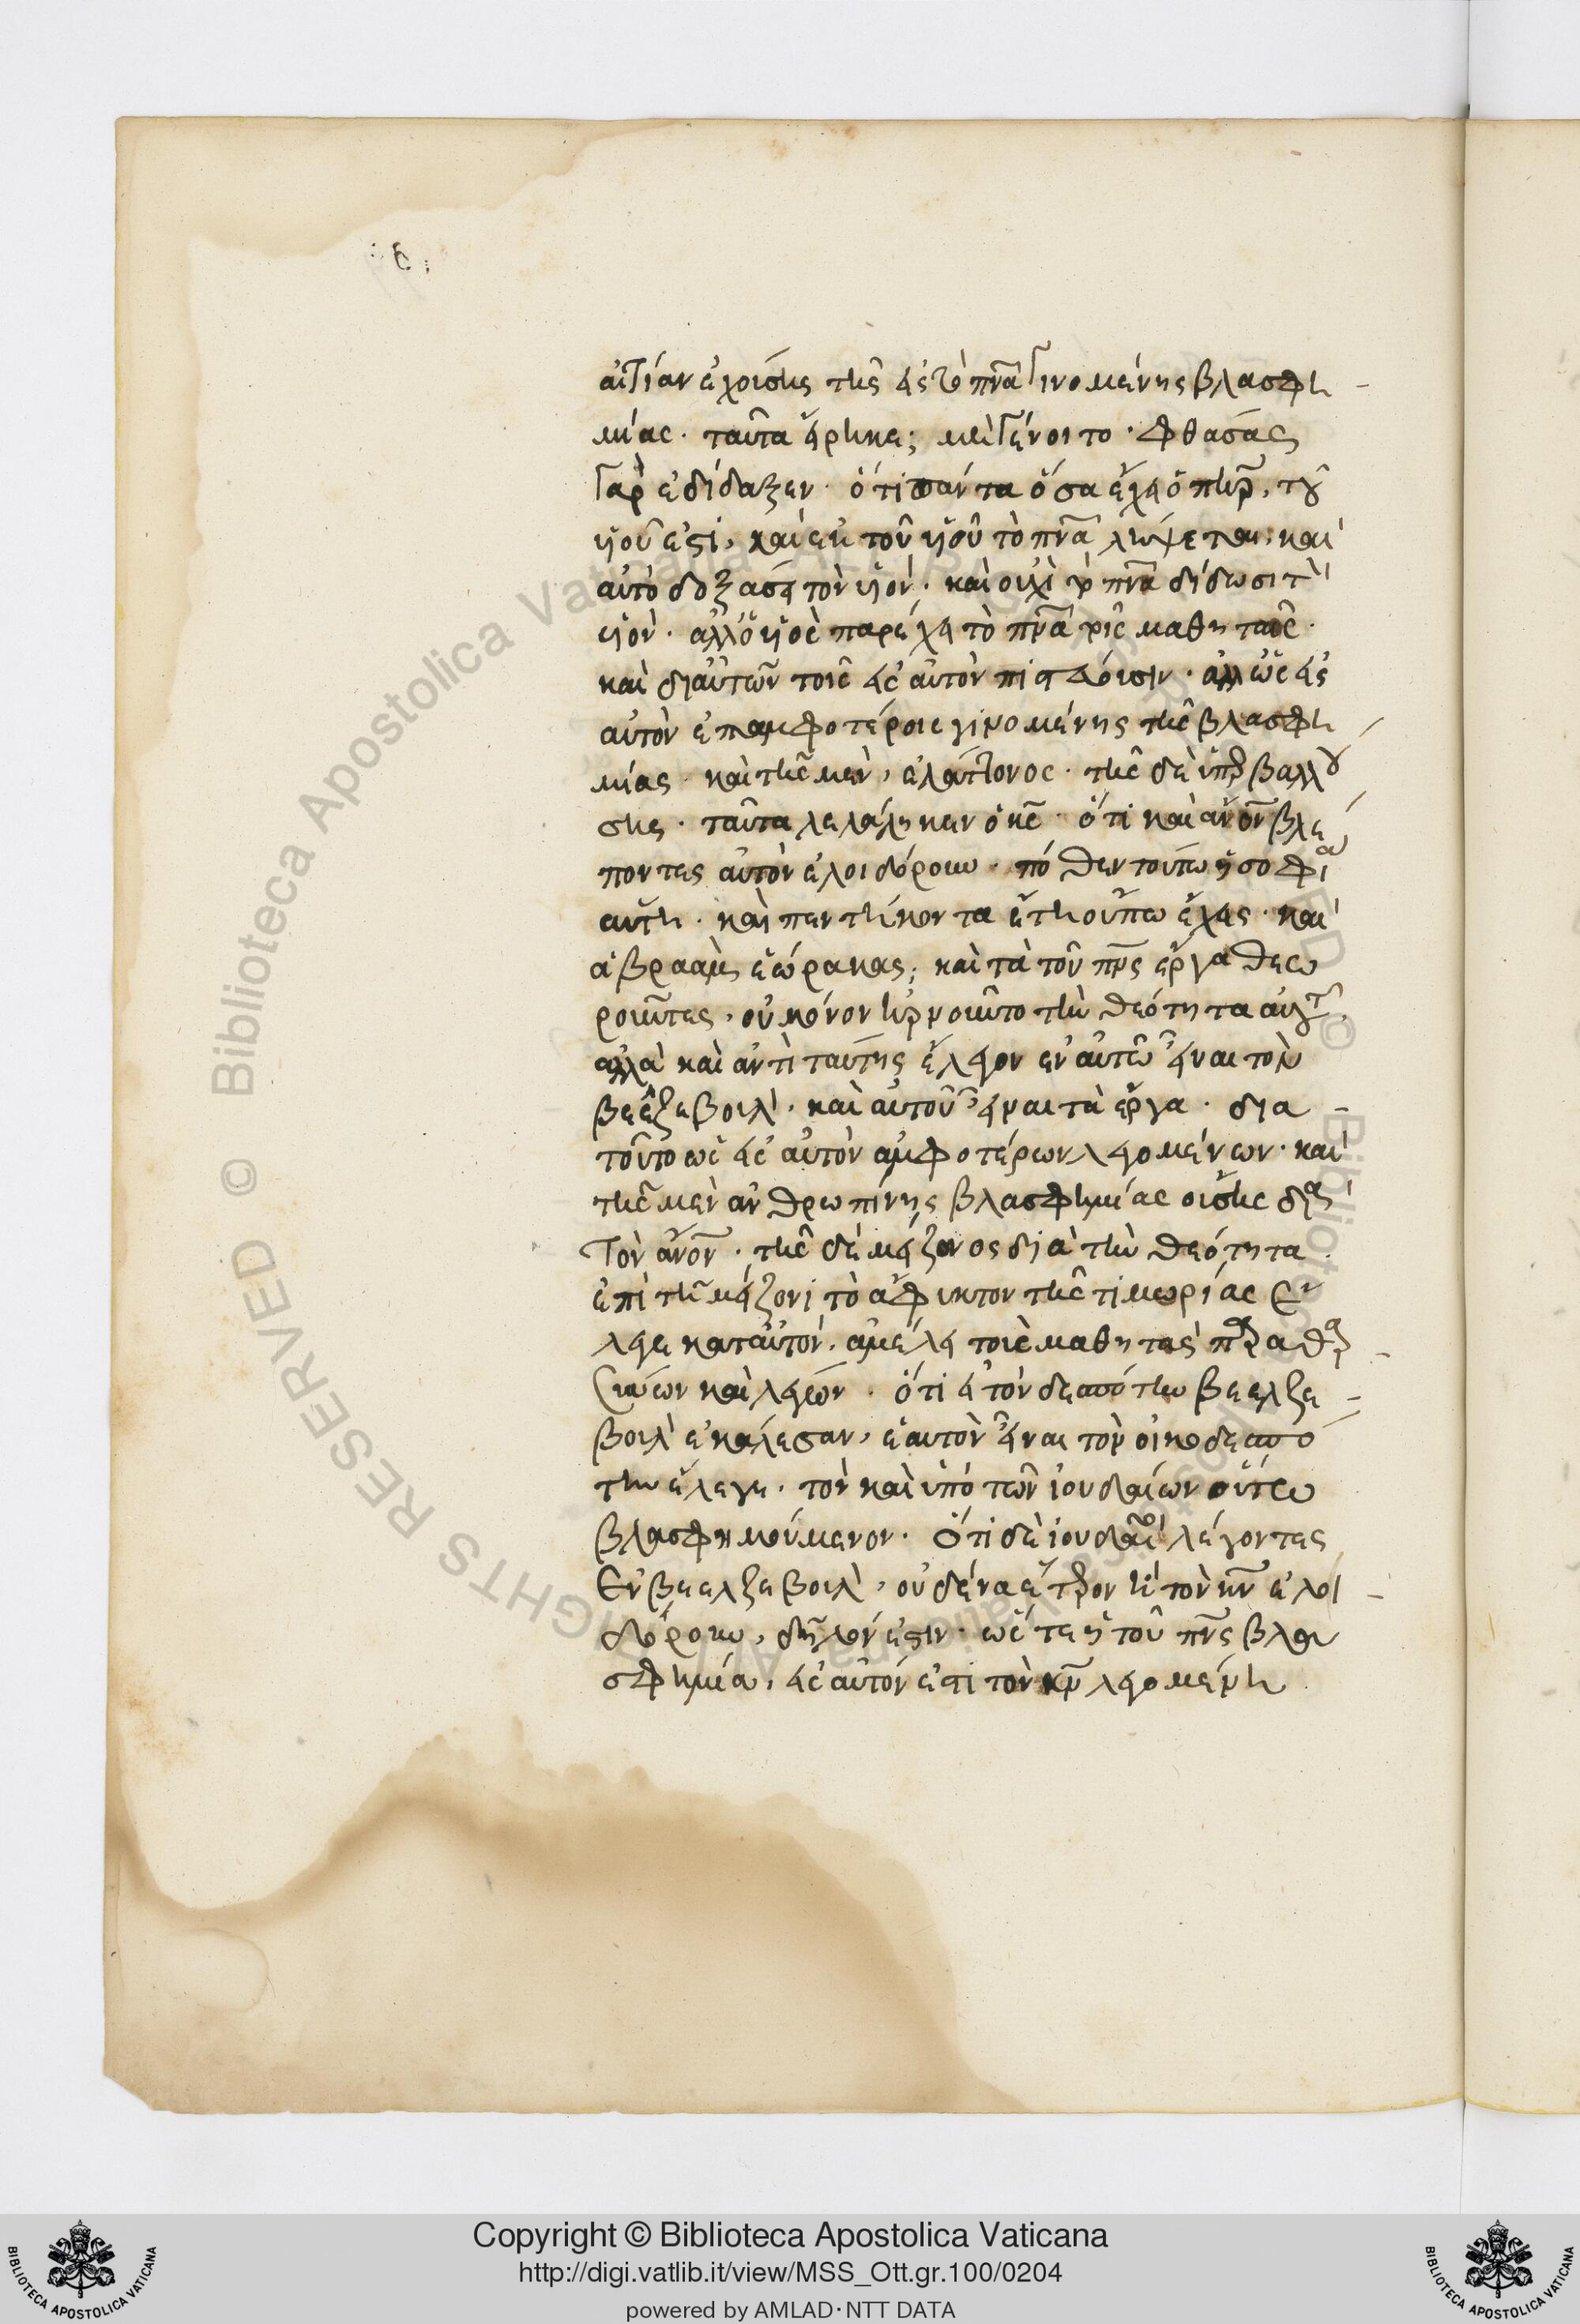 αἰτίαν ἐχούσης τῆς εἰς τὸ πνᾶ γινομένης βλασφη
μίας. ταῦτα εἴρηκε; μὴ γένοιτο. φθάσας
γὰρ ἐδίδαξεν. ὅτι πάντα ὅσα ἔχει ὁ πηρ, τοῦ
υἱοῦ ἐστί, καὶ ἐκ τοῦ υἱοῦ τὸ πνᾶ λήψεται, καὶ
αὐτὸ δοξάσει τὸν υἱόν. καὶ οὐχὶ τὸ πνᾶ δίδωσι τὸν
υἱόν. ἀλλ' ὁ υἱὸς παρέχει τὸ πνᾶ τοῖς μαθηταῖς.
καὶ δι' αὐτῶν τοῖς εἰς αὐτὸν πιστεύουσιν. ἀλλ' ὡς εἰς
αὐτὸν ἐπαμφοτέροις γινομένης τῆς βλασφη
μίας. καὶ τῆς μὲν, ἐλάττονος. τῆς δὲ ὑπερβαλλού
σης. ταῦτα λελάληκεν ὁ κς. ὅτι καὶ ἄνον βλέ
ποντες αὐτὸν ἐλοιδόρουν. πόθεν τούτω ἡ σοφία
αὕτη. καὶ πεντήκοντα ἔτη οὔπω ἔχεις. καὶ
ἀβραὰμ ἑώρακας; καὶ τὰ τοῦ πρς ἔργα θεω
ροῦντες, οὐ μόνον ἠρνοῦντο τὴν θεότητα αὐτοῦ,
ἀλλὰ καὶ ἀντὶ ταύτης ἔλεγον ἐν αὐτῶ εἶναι τὸν
βεελζεβοὺλ, καὶ αὐτοῦ εἶναι τὰ ἔργα. δια
τοῦτο ὡς εἰς αὐτὸν ἀμφοτέρων λεγομένων. καὶ
τῆς μὲν ἀνθρωπίνης βλασφημίας οὔσης διὰ
τὸν ἄνον. τῆς δὲ μείζονος διὰ τὴν θεότητα.
ἐπὶ τῆ μείζονι τὸ ἄφυκτον τῆς τιμωρίας ἔ
λεγε κατ' αὐτὸν. ἀμέλει τοὺς μαθητὰς παραθαρ
σύνων καὶ λέγων. ὅτι εἰ τὸν δεσπότην βεελζε
βοὺλ ἐκάλεσαν, ἑαυτὸν εἶναι τὸν οἰκοδεσπό
την ἔλεγε. τὸν καὶ ὑπὸ τῶν ἰουδαίων οὕτω
βλασφημούμενον. Ὅτι δὲ ἰουδαῖοι λέγοντες
Ἐν βεελζεβοὺλ, οὐδένα ἕτερον ἢ τὸν κν ἐλοι
δόρουν, δῆλόν ἐστιν. ὥστε ἡ τοῦ πνς βλα
σφημία, εἰς αὐτόν ἐστι τὸν κν λεγομένη
Copyright © Biblioteca Apostolica Vaticana
http://digi.vatlib.it/view/MSS_Ott.gr.100/0204
powered by AMLAD·NTT DATA